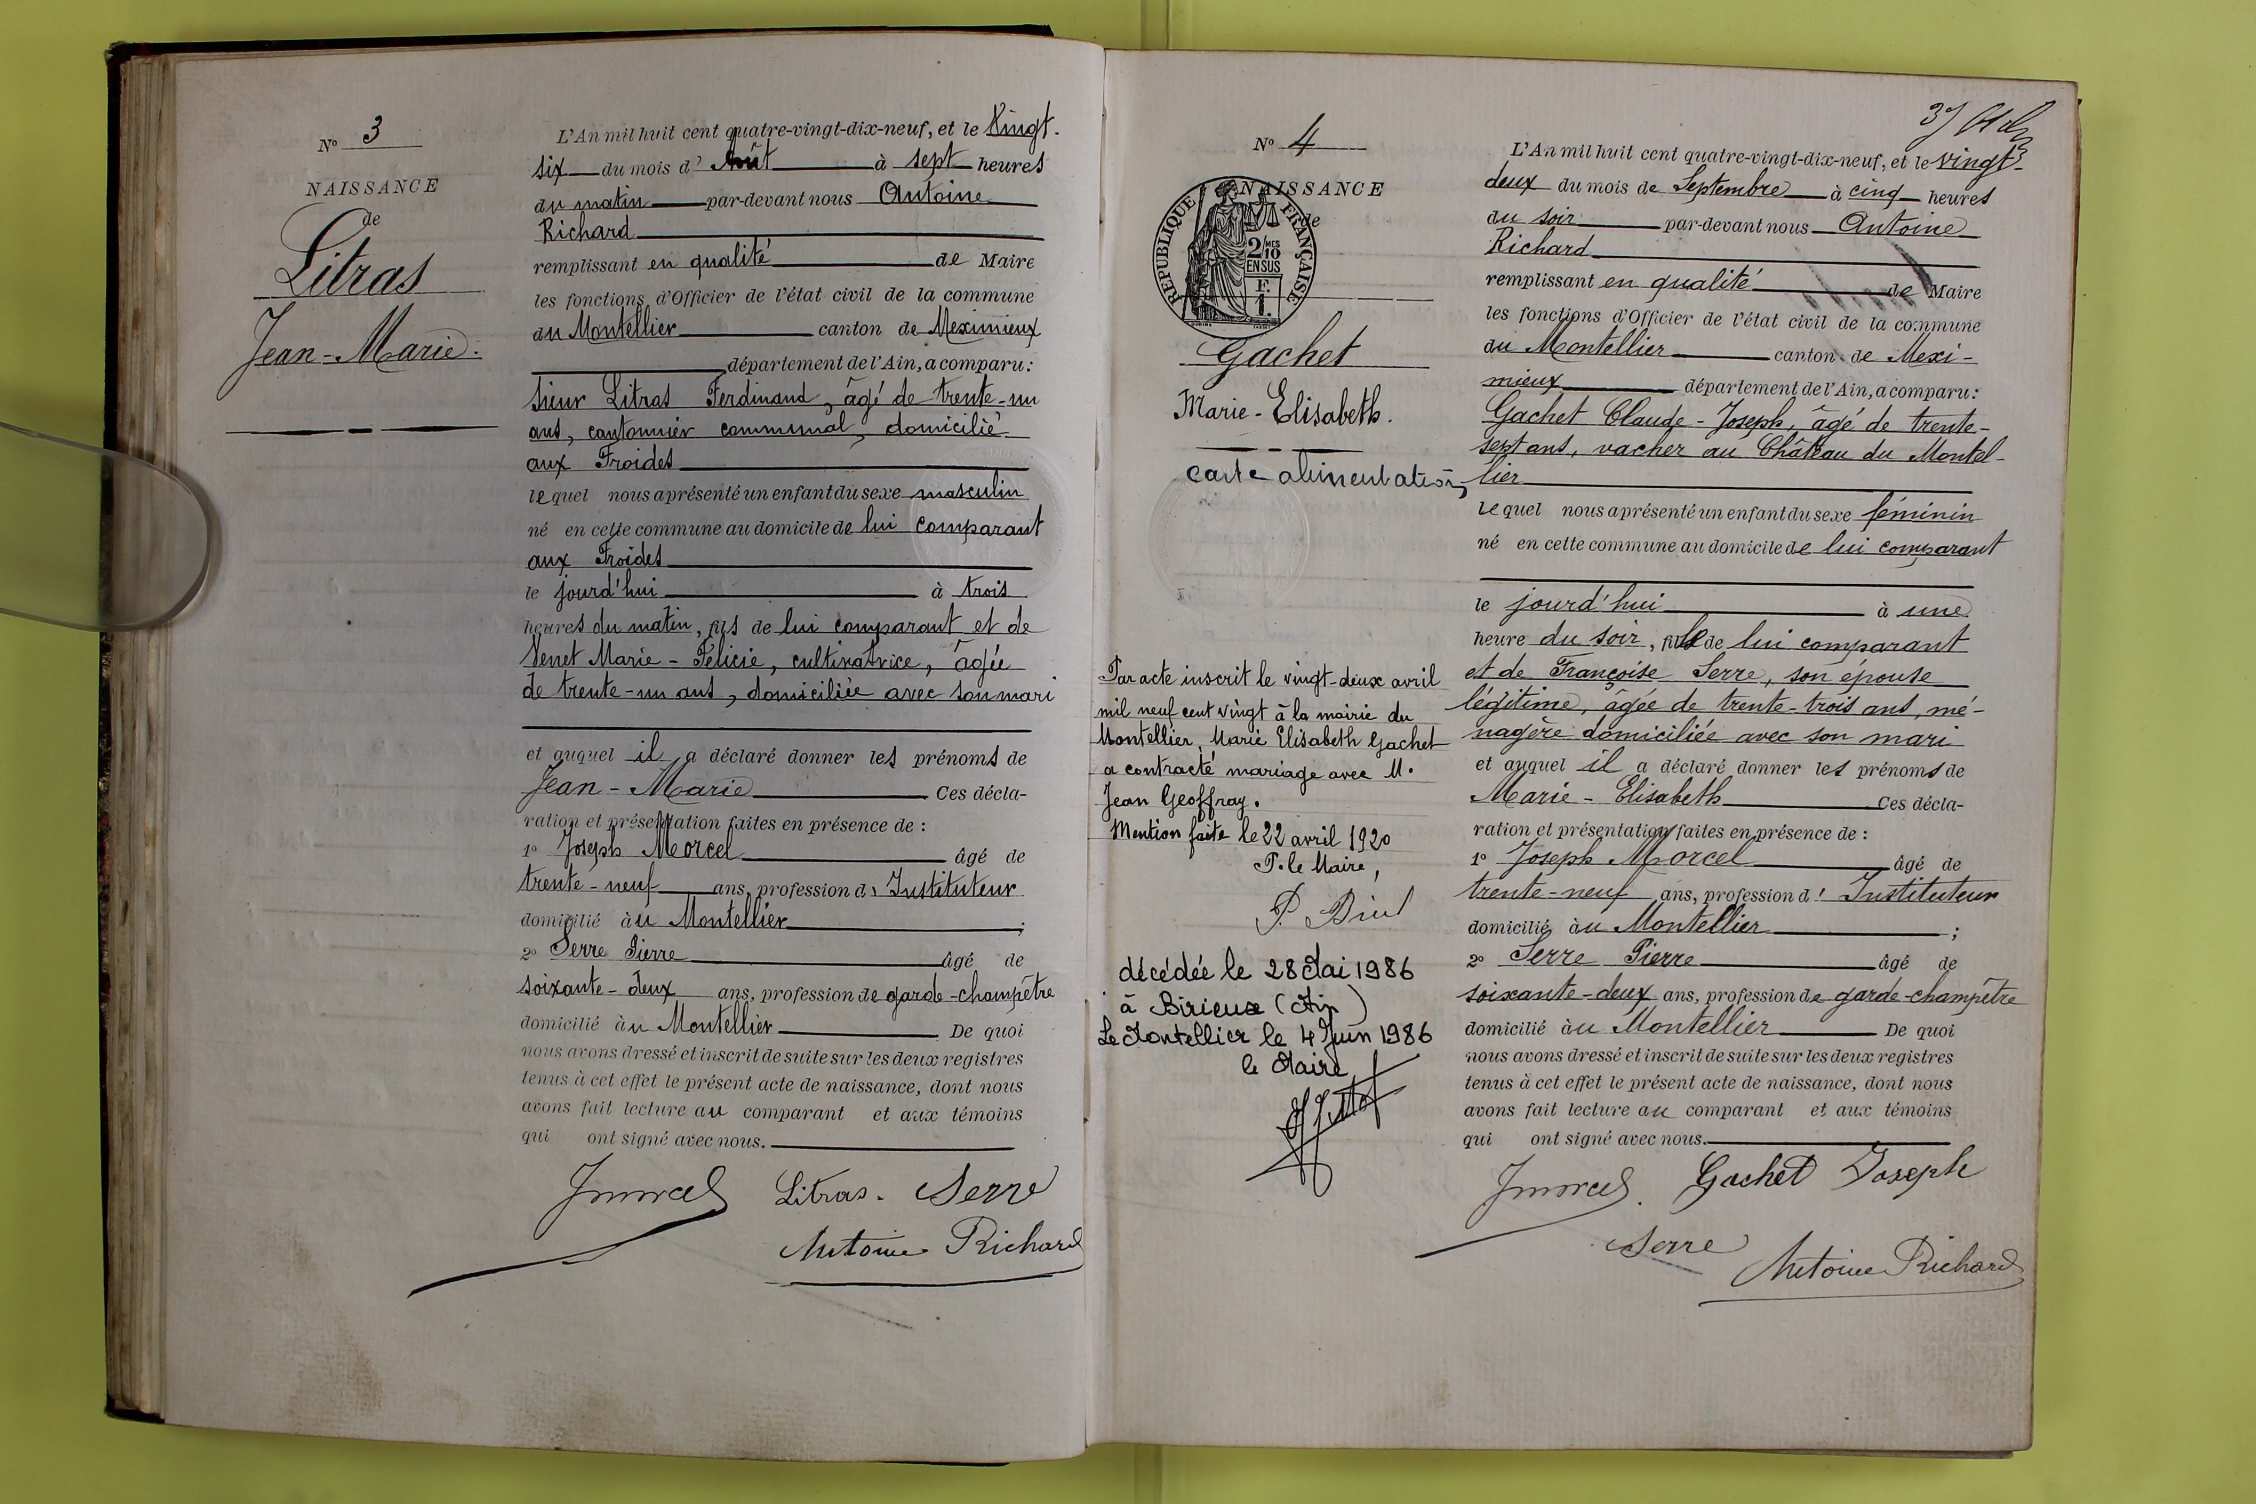 N° 3
NAISSANCE
de
Litras
Jean-Marie.
L'An mil huit cent quatre-vingt-dix-neuf, et le Vingt-
six du mois d' Août à sept heures
du matin par-devant nous Antoine
Richard
remplissant en qualité de Maire
les fonctions d'Officier de l'état civil de la commune
du Montellier canton de Meximieux
département de l'Ain, a comparu:
sieur Litras Ferdinand, âgé de trente-un
ans, cantonnier communal, domicilié
aux Froides
lequel nous a présenté un enfant du sexe masculin
né en cette commune au domicile de lui comparant
aux Froides
le jourd'hui à trois
heures du matin, fils de lui comparant et de
Venet Marie-Félicie, cultivatrice, âgée
de trente-un ans, domiciliée avec son mari
et auquel il a déclaré donner les prénoms de
Jean-Marie Ces décla-
ration et présentation faites en présence de :
1° Joseph Morcel âgé de
trente-neuf ans, profession d' Instituteur
domicilié au Montellier ;
2° Serre Pierre âgé de
soixante-deux ans, profession de garde-champêtre
domicilié au Montellier De quoi
nous avons dressé et inscrit de suite sur les deux registres
tenus à cet effet le présent acte de naissance, dont nous
avons fait lecture au comparant et aux témoins
qui ont signé avec nous.
Jmorcel Litras. Serre
Antoine Richard
N° 4
NAISSANCE
de
RÉPUBLIQUE FRANÇAISE
2/MES
10
EN SUS
F.
1.
Gachet
Marie-Elisabeth.
carte alimentation
Par acte inscrit le vingt-deux avril
mil neuf cent vingt à la mairie du
Montellier, Marie Elisabeth Gachet
a contracté mariage avec M.
Jean Geoffray.
Mention faite le 22 avril 1920
P. le Maire,
décédée le 28 Mai 1986
à Birieux (Ain)
Le Montellier le 4 Juin 1986
le Maire
L'An mil huit cent quatre-vingt-dix-neuf, et le vingt-
deux du mois de Septembre à cinq heures
du soir par-devant nous Antoine
Richard
remplissant en qualité de Maire
les fonctions d'Officier de l'état civil de la commune
du Montellier canton de Mexi-
mieux département de l'Ain, a comparu:
Gachet Claude-Joseph, âgé de trente-
sept ans, vacher au Château du Montel-
lier
lequel nous a présenté un enfant du sexe féminin
né en cette commune au domicile de lui comparant
le jourd'hui à une
heure du soir, fille de lui comparant
et de Françoise Serre, son épouse
légitime, âgée de trente-trois ans, mé-
nagère domiciliée avec son mari
et auquel il a déclaré donner les prénoms de
Marie-Elisabeth Ces décla-
ration et présentation faites en présence de :
1° Joseph Morcel âgé de
trente-neuf ans, profession d' Instituteur
domicilié au Montellier ;
2° Serre Pierre âgé de
soixante-deux ans, profession de garde-champêtre
domicilié au Montellier De quoi
nous avons dressé et inscrit de suite sur les deux registres
tenus à cet effet le présent acte de naissance, dont nous
avons fait lecture au comparant et aux témoins
qui ont signé avec nous.
Jmorcel. Gachet Joseph
Serre
Antoine Richard